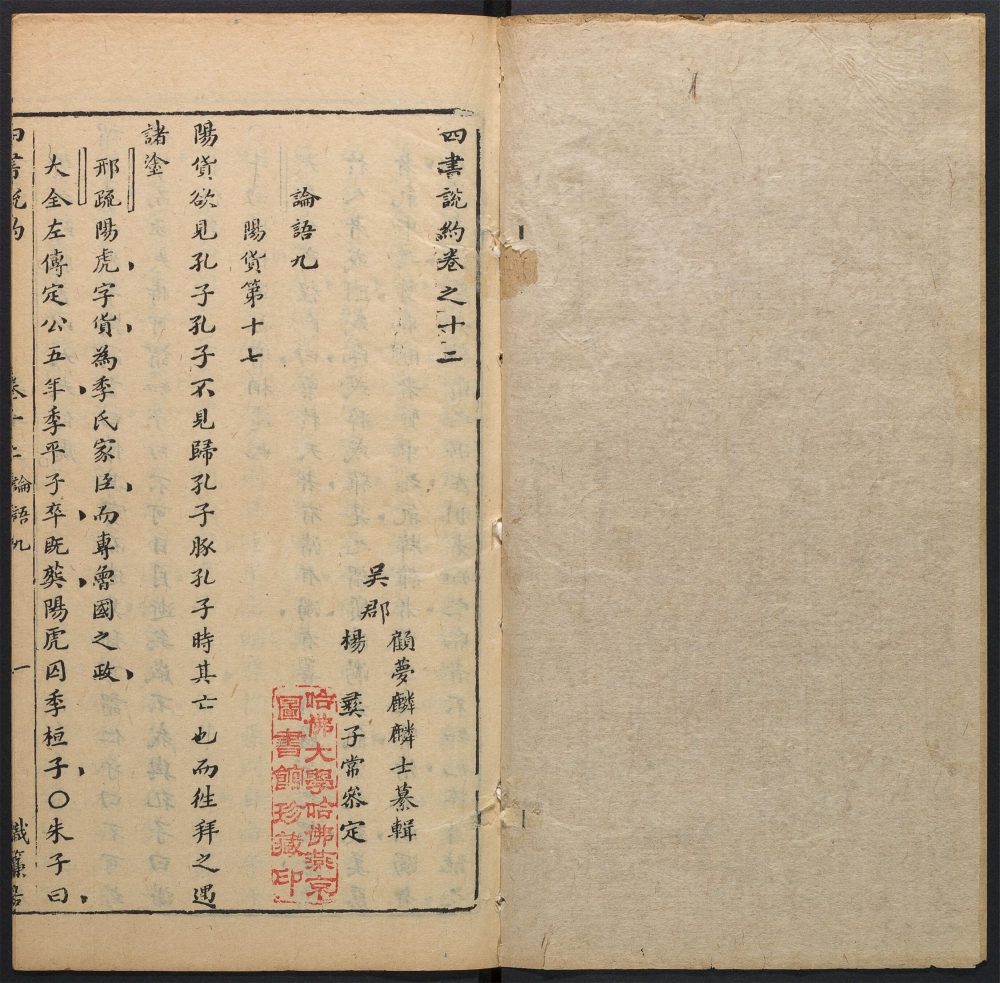 四書說約卷之十二
吳郡
顧夢麟麟士纂輯
楊彝子常參定
論語九
陽貨第十七
陽貨欲見孔子孔子不見歸孔子豚孔子時其亡也而徃拜之遇
諸塗
邢疏陽虎字貨為季氏家臣而專魯國之政
大全左傳定公五年季平子卒既葬陽虎囚季桓子〇朱子曰
四書說約 卷十二論語九 一 織簾居
哈佛大學哈佛燕京
圖書館珍藏印